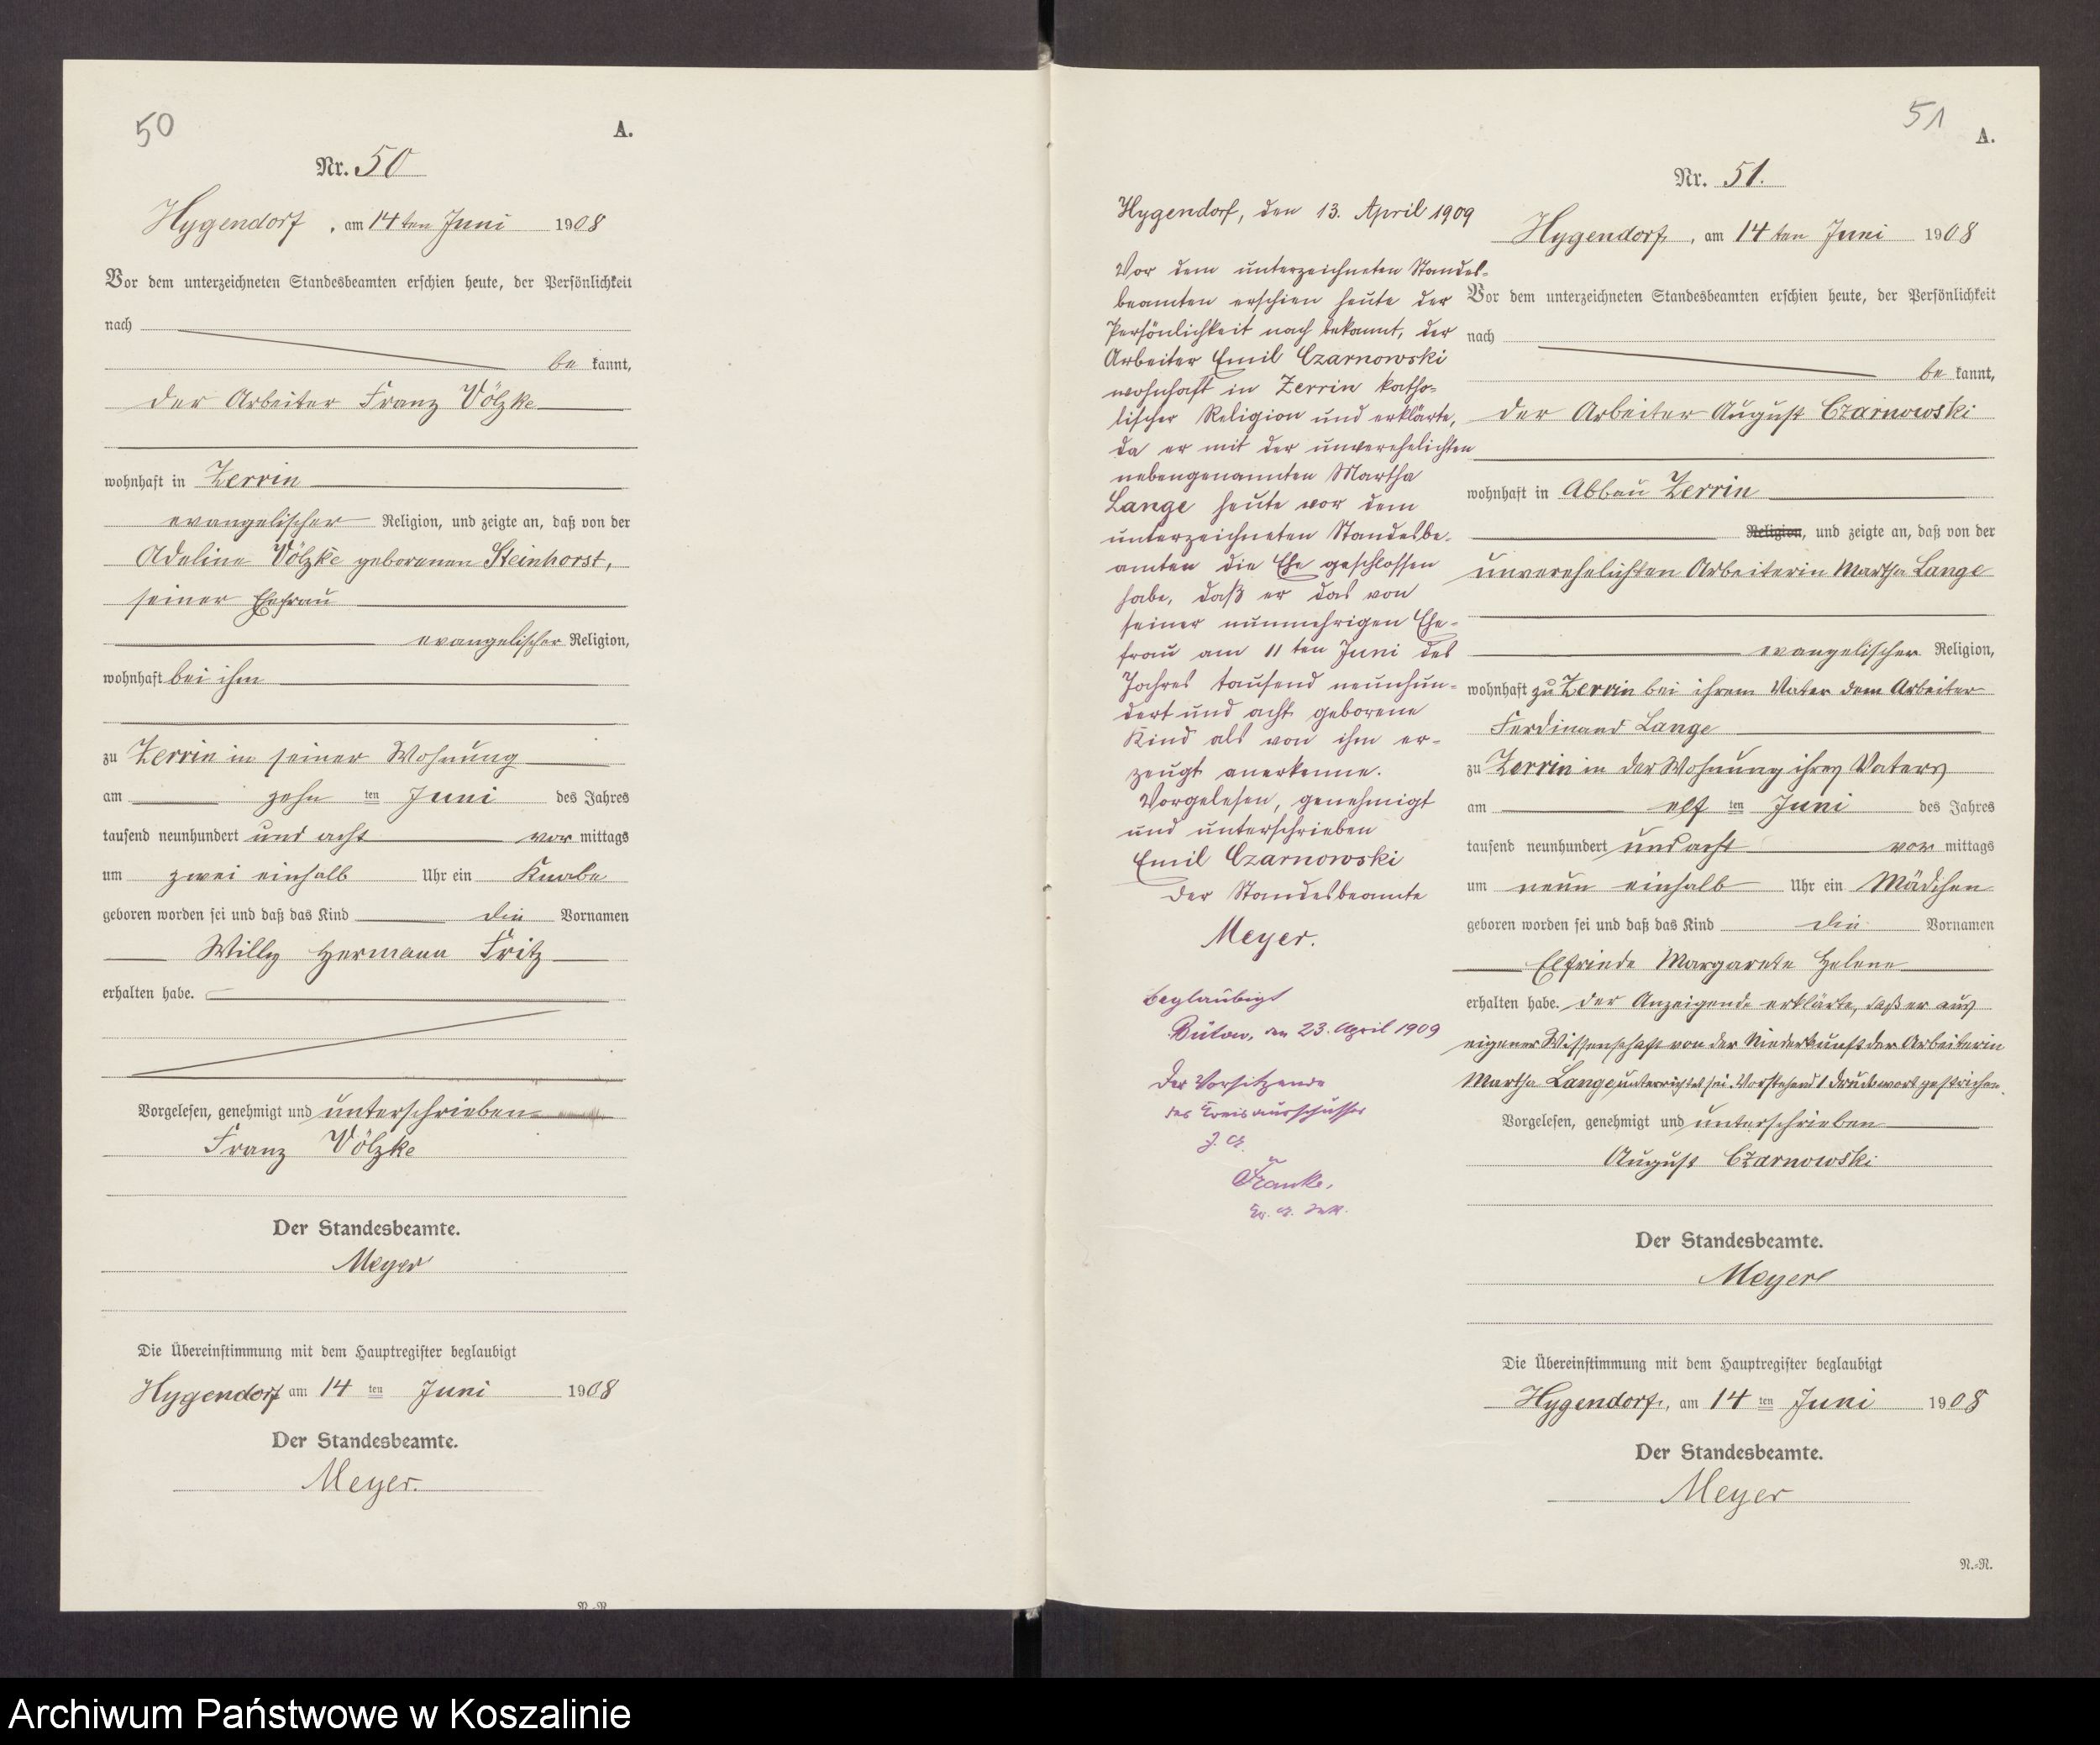 50
A.
Nr. 50
Hygendorf, am 14ten Juni 1908
Vor dem unterzeichneten Standesbeamten erschien heute, der Persönlichkeit
nach
be kannt,
der Arbeiter Franz Völzke
wohnhaft in Zerrin
evangelischer Religion, und zeigte an, daß von der
Adeline Völzke geborenen Steinhorst,
seiner Ehefrau
evangelischer Religion,
wohnhaft bei ihm
zu Zerrin in seiner Wohnung
am zehn ten Juni des Jahres
tausend neunhundert und acht vor mittags
um zwei einhalb Uhr ein Knabe
geboren worden sei und daß das Kind die Vornamen
Willy Hermann Fritz
erhalten habe.
Vorgelesen, genehmigt und unterschrieben
Franz Völzke
Der Standesbeamte.
Meyer
Die Übereinstimmung mit dem Hauptregister beglaubigt
Hygendorf am 14 ten Juni 1908
Der Standesbeamte.
Meyer.
Hygendorf, den 13. April 1909
Vor dem unterzeichneten Standes-
beamten erschien heute der
Persönlichkeit nach bekannt, der
Arbeiter Emil Czarnowski
wohnhaft in Zerrin katho-
lischer Religion und erklärte,
da er mit der unverehelichten
nebengenannten Martha
Lange heute vor dem
unterzeichneten Standesbe-
amten die Ehe geschlossen
habe, daß er das von
seiner nunmehrigen Ehe-
frau am 11ten Juni des
Jahres tausend neunhun-
dert und acht geborene
Kind als von ihm er-
zeugt anerkenne.
Vorgelesen, genehmigt
und unterschrieben
Emil Czarnowski
Der Standesbeamte
Meyer.
Beglaubigt
Bütow, den 23. April 1909
Der Vorsitzende
des Kreisausschusses
Franke,
51
A.
Nr. 51.
Hygendorf, am 14ten Juni 1908
Vor dem unterzeichneten Standesbeamten erschien heute, der Persönlichkeit
nach
be kannt,
der Arbeiter August Czarnowski
wohnhaft in Abbau Zerrin
Religion, und zeigte an, daß von der
unverehelichten Arbeiterin Martha Lange
evangelischer Religion,
wohnhaft zu Zerrin bei ihrem Vater dem Arbeiter
Ferdinand Lange
zu Zerrin in der Wohnung ihres Vaters
am elf ten Juni des Jahres
tausend neunhundert und acht vor mittags
um neun einhalb Uhr ein Mädchen
geboren worden sei und daß das Kind die Vornamen
Elfriede Margarete Helene
erhalten habe. Der Anzeigende erklärte, daß er aus
eigener Wissenschaft von der Niederkunft der Arbeiterin
Martha Lange unterrichtet sei. Vorstehend 1 Druckwort gestrichen.
Vorgelesen, genehmigt und unterschrieben
August Czarnowski
Der Standesbeamte.
Meyer
Die Übereinstimmung mit dem Hauptregister beglaubigt
Hygendorf, am 14 ten Juni 1908
Der Standesbeamte.
Meyer
N.-N.
Archiwum Państwowe w Koszalinie